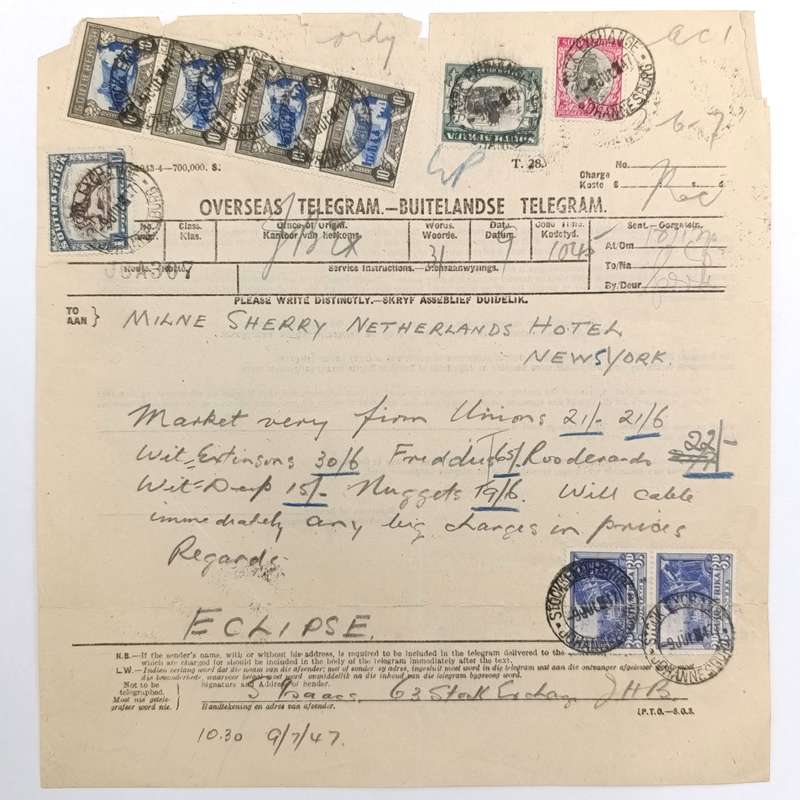 ordy
ac1
SOUTH AFRICA
STOCK EXCHANGE
JOHANNESBURG
1943-4—700,000. S.
T. 28.
No.
Charge
Koste £ s. d.
OVERSEAS TELEGRAM.—BUITELANDSE TELEGRAM.
No. Class. Klas. Office of Origin. Kantoor van herkoms. Words. Woorde. Date. Datum. Code Time. Kodetyd. Sent.—Gesein.
J'Bex 31 9 1045
At/Om
To/Na
By/Deur
Service Instructions.—Diensaanwysings.
PLEASE WRITE DISTINCTLY.—SKRYF ASSEBLIEF DUIDELIK.
TO
AAN }
MILNE SHERRY NETHERLANDS HOTEL
NEWYORK.
Market very firm Unions 21/- 21/6
Wit=Extinsons 30/6 Freddies 65/- Rooderands 22/-
Wit=Deep 15/- Nuggets 19/6. Will cable
immediately any big changes in prices
Regards.
ECLIPSE.
STOCK EXCHANGE
-9 JUL 47
JOHANNESBURG
N.B.—If the sender's name, with or without his address, is required to be included in the telegram delivered to the
which are charged for should be included in the body of the telegram immediately after the text.
L.W.—Indien verlang word dat die naam van die afsender, met of sonder sy adres, ingesluit moet word in die telegram wat aan die ontvanger afgelewer
die besonderhede, waarvoor betaal moet word onmiddellik na die inhoud van die telegram bygevoeg word.
Not to be
telegraphed.
Moet nie getele-
grafeer word nie.
Signature and Address of Sender.
Isaacs, 63 Stock Exchange JHB.
Handtekening en adres van afsender.
[P.T.O.—S.O.S.
10.30 9/7/47.